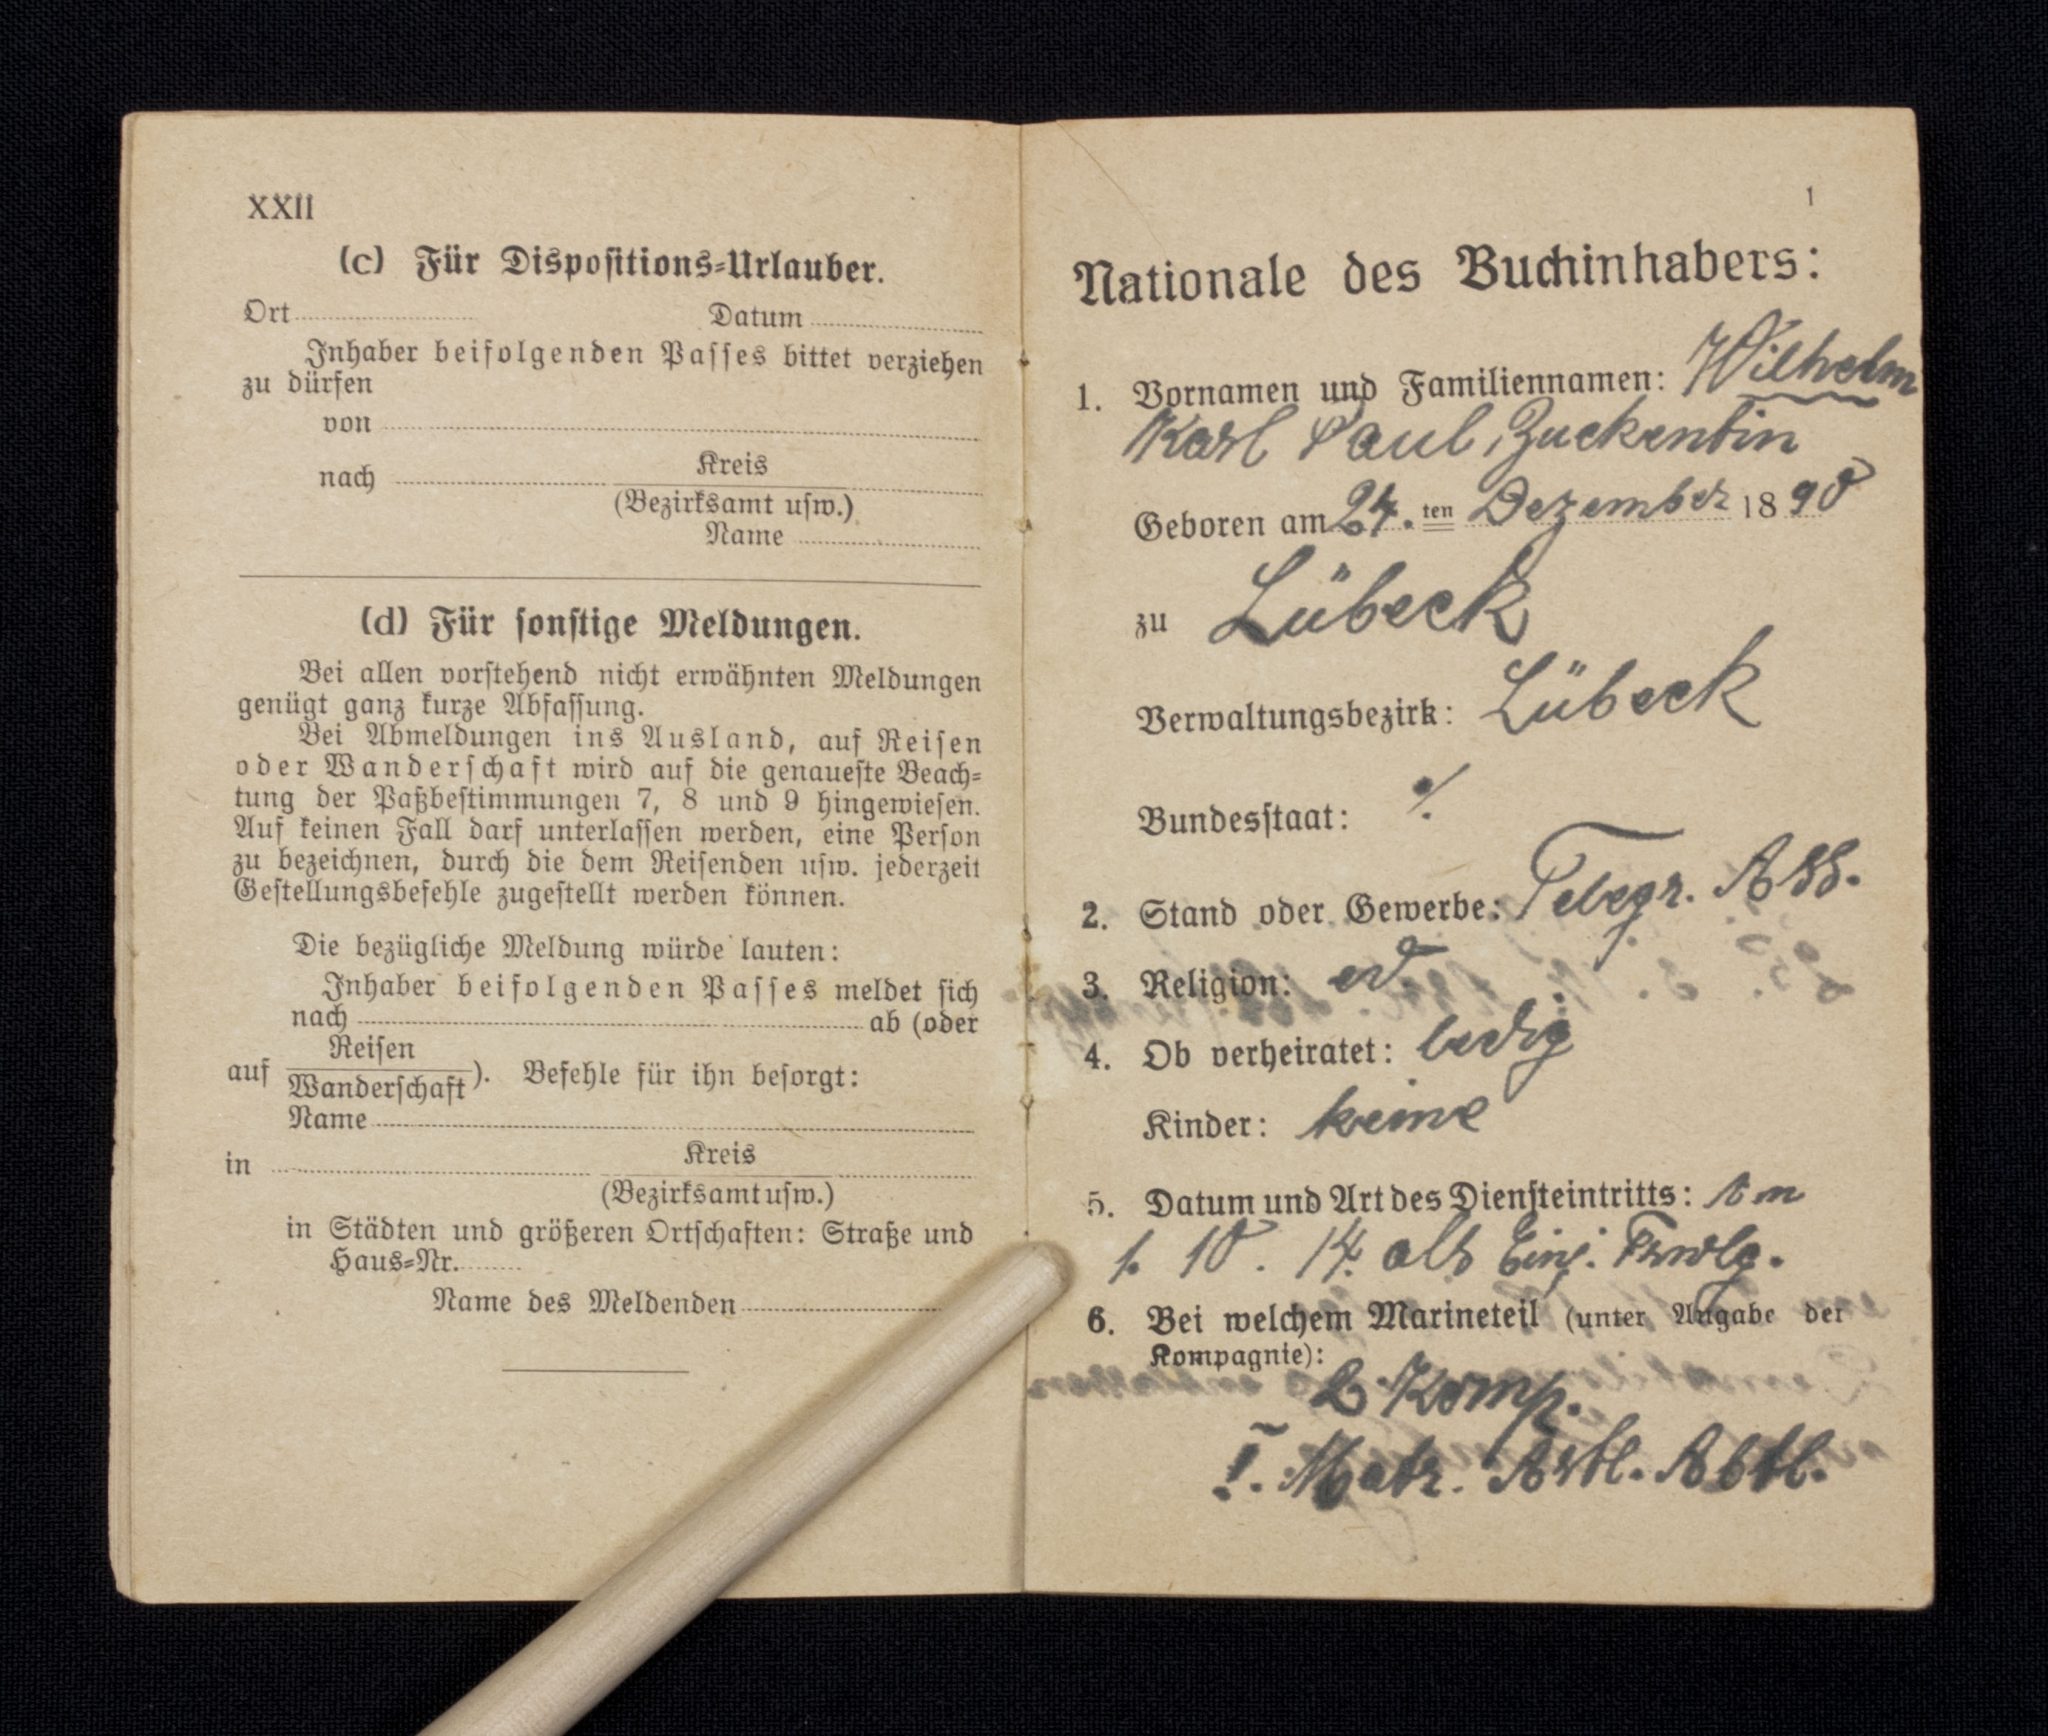 XXII
(c) Für Dispositions-Urlauber.
Ort Datum
Inhaber beifolgenden Passes bittet verziehen
zu dürfen
von
nach Kreis
(Bezirksamt usw.)
Name
(d) Für sonstige Meldungen.
Bei allen vorstehend nicht erwähnten Meldungen
genügt ganz kurze Abfassung.
Bei Abmeldungen ins Ausland, auf Reisen
oder Wanderschaft wird auf die genaueste Beach-
tung der Paßbestimmungen 7, 8 und 9 hingewiesen.
Auf keinen Fall darf unterlassen werden, eine Person
zu bezeichnen, durch die dem Reisenden usw. jederzeit
Gestellungsbefehle zugestellt werden können.
Die bezügliche Meldung würde lauten:
Inhaber beifolgenden Passes meldet sich
nach ab (oder
Reisen
auf ). Befehle für ihn besorgt:
Wanderschaft
Name
in Kreis
(Bezirksamt usw.)
in Städten und größeren Ortschaften: Straße und
Haus-Nr.
Name des Meldenden
1
Nationale des Buchinhabers:
1. Vornamen und Familiennamen: Wilhelm
Karl Paul Zuckentin
Geboren am 24. ten Dezember 1890
zu Lübeck
Verwaltungsbezirk: Lübeck
Bundesstaat: ./.
2. Stand oder Gewerbe: Telegr. Ass.
3. Religion: ev.
4. Ob verheiratet: ledig
Kinder: keine
5. Datum und Art des Diensteintritts: am
1. 10. 14. als Einj. Frwlg.
6. Bei welchem Marineteil (unter Angabe der
Kompagnie):
2. Komp.
I. Matr. Artl. Abtl.